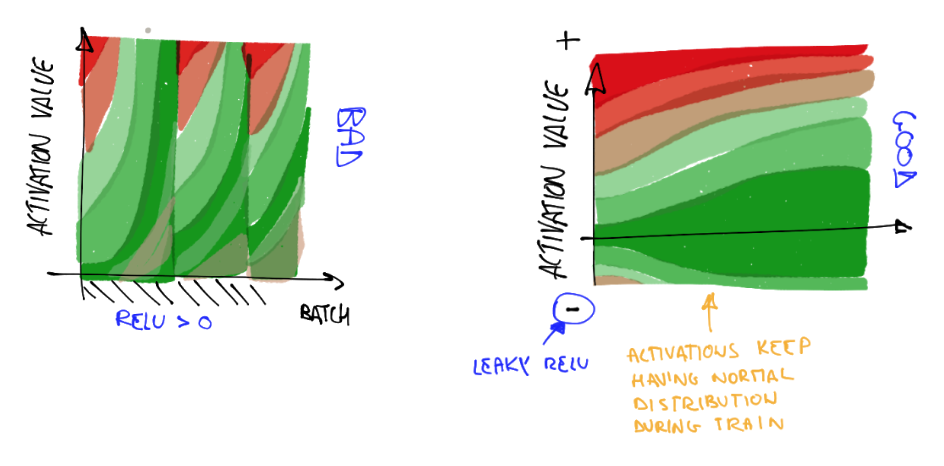 ACTIVATION VALUE
BAD
RELU > 0
BATCH
+
ACTIVATION VALUE
GOOD
-
LEAKY RELU
ACTIVATIONS KEEP
HAVING NORMAL
DISTRIBUTION
DURING TRAIN